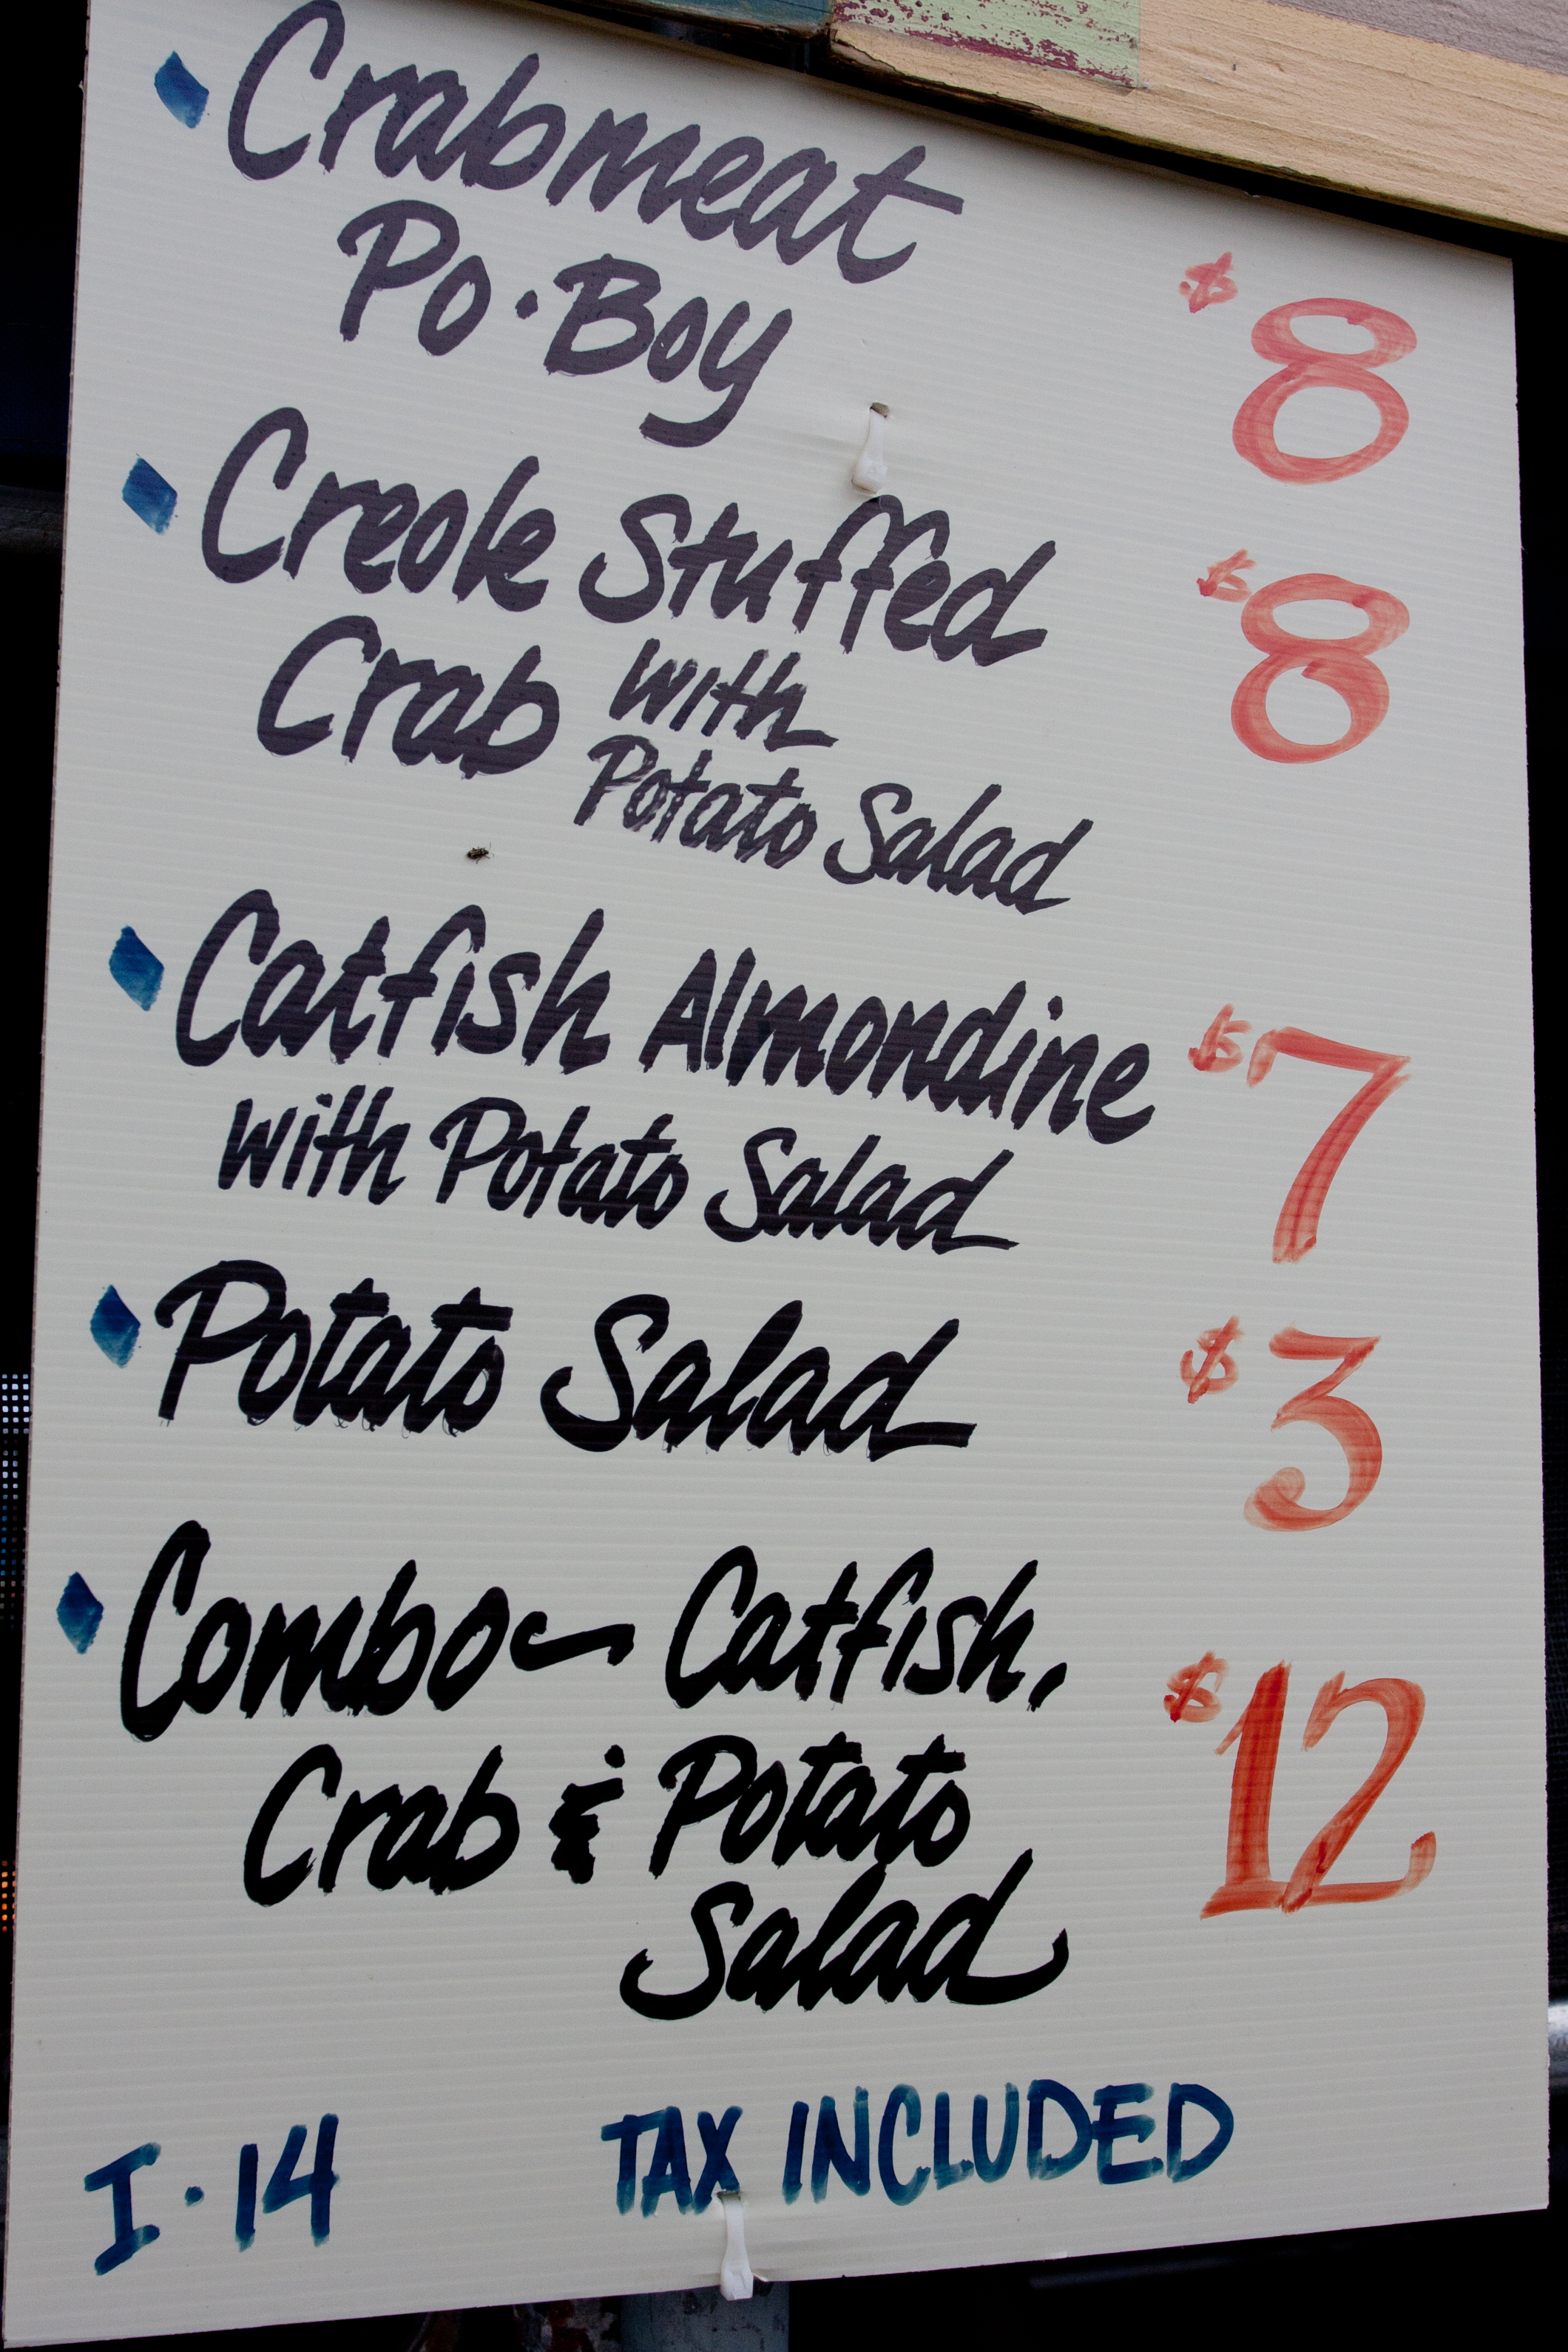 Crabmeat
Po·Boy $8
Creole Stuffed $8
Crab with
Potato Salad
Catfish Almondine $7
with Potato Salad
Potato Salad $3
Combo - Catfish,
Crab & Potato $12
Salad
TAX INCLUDED
I·14